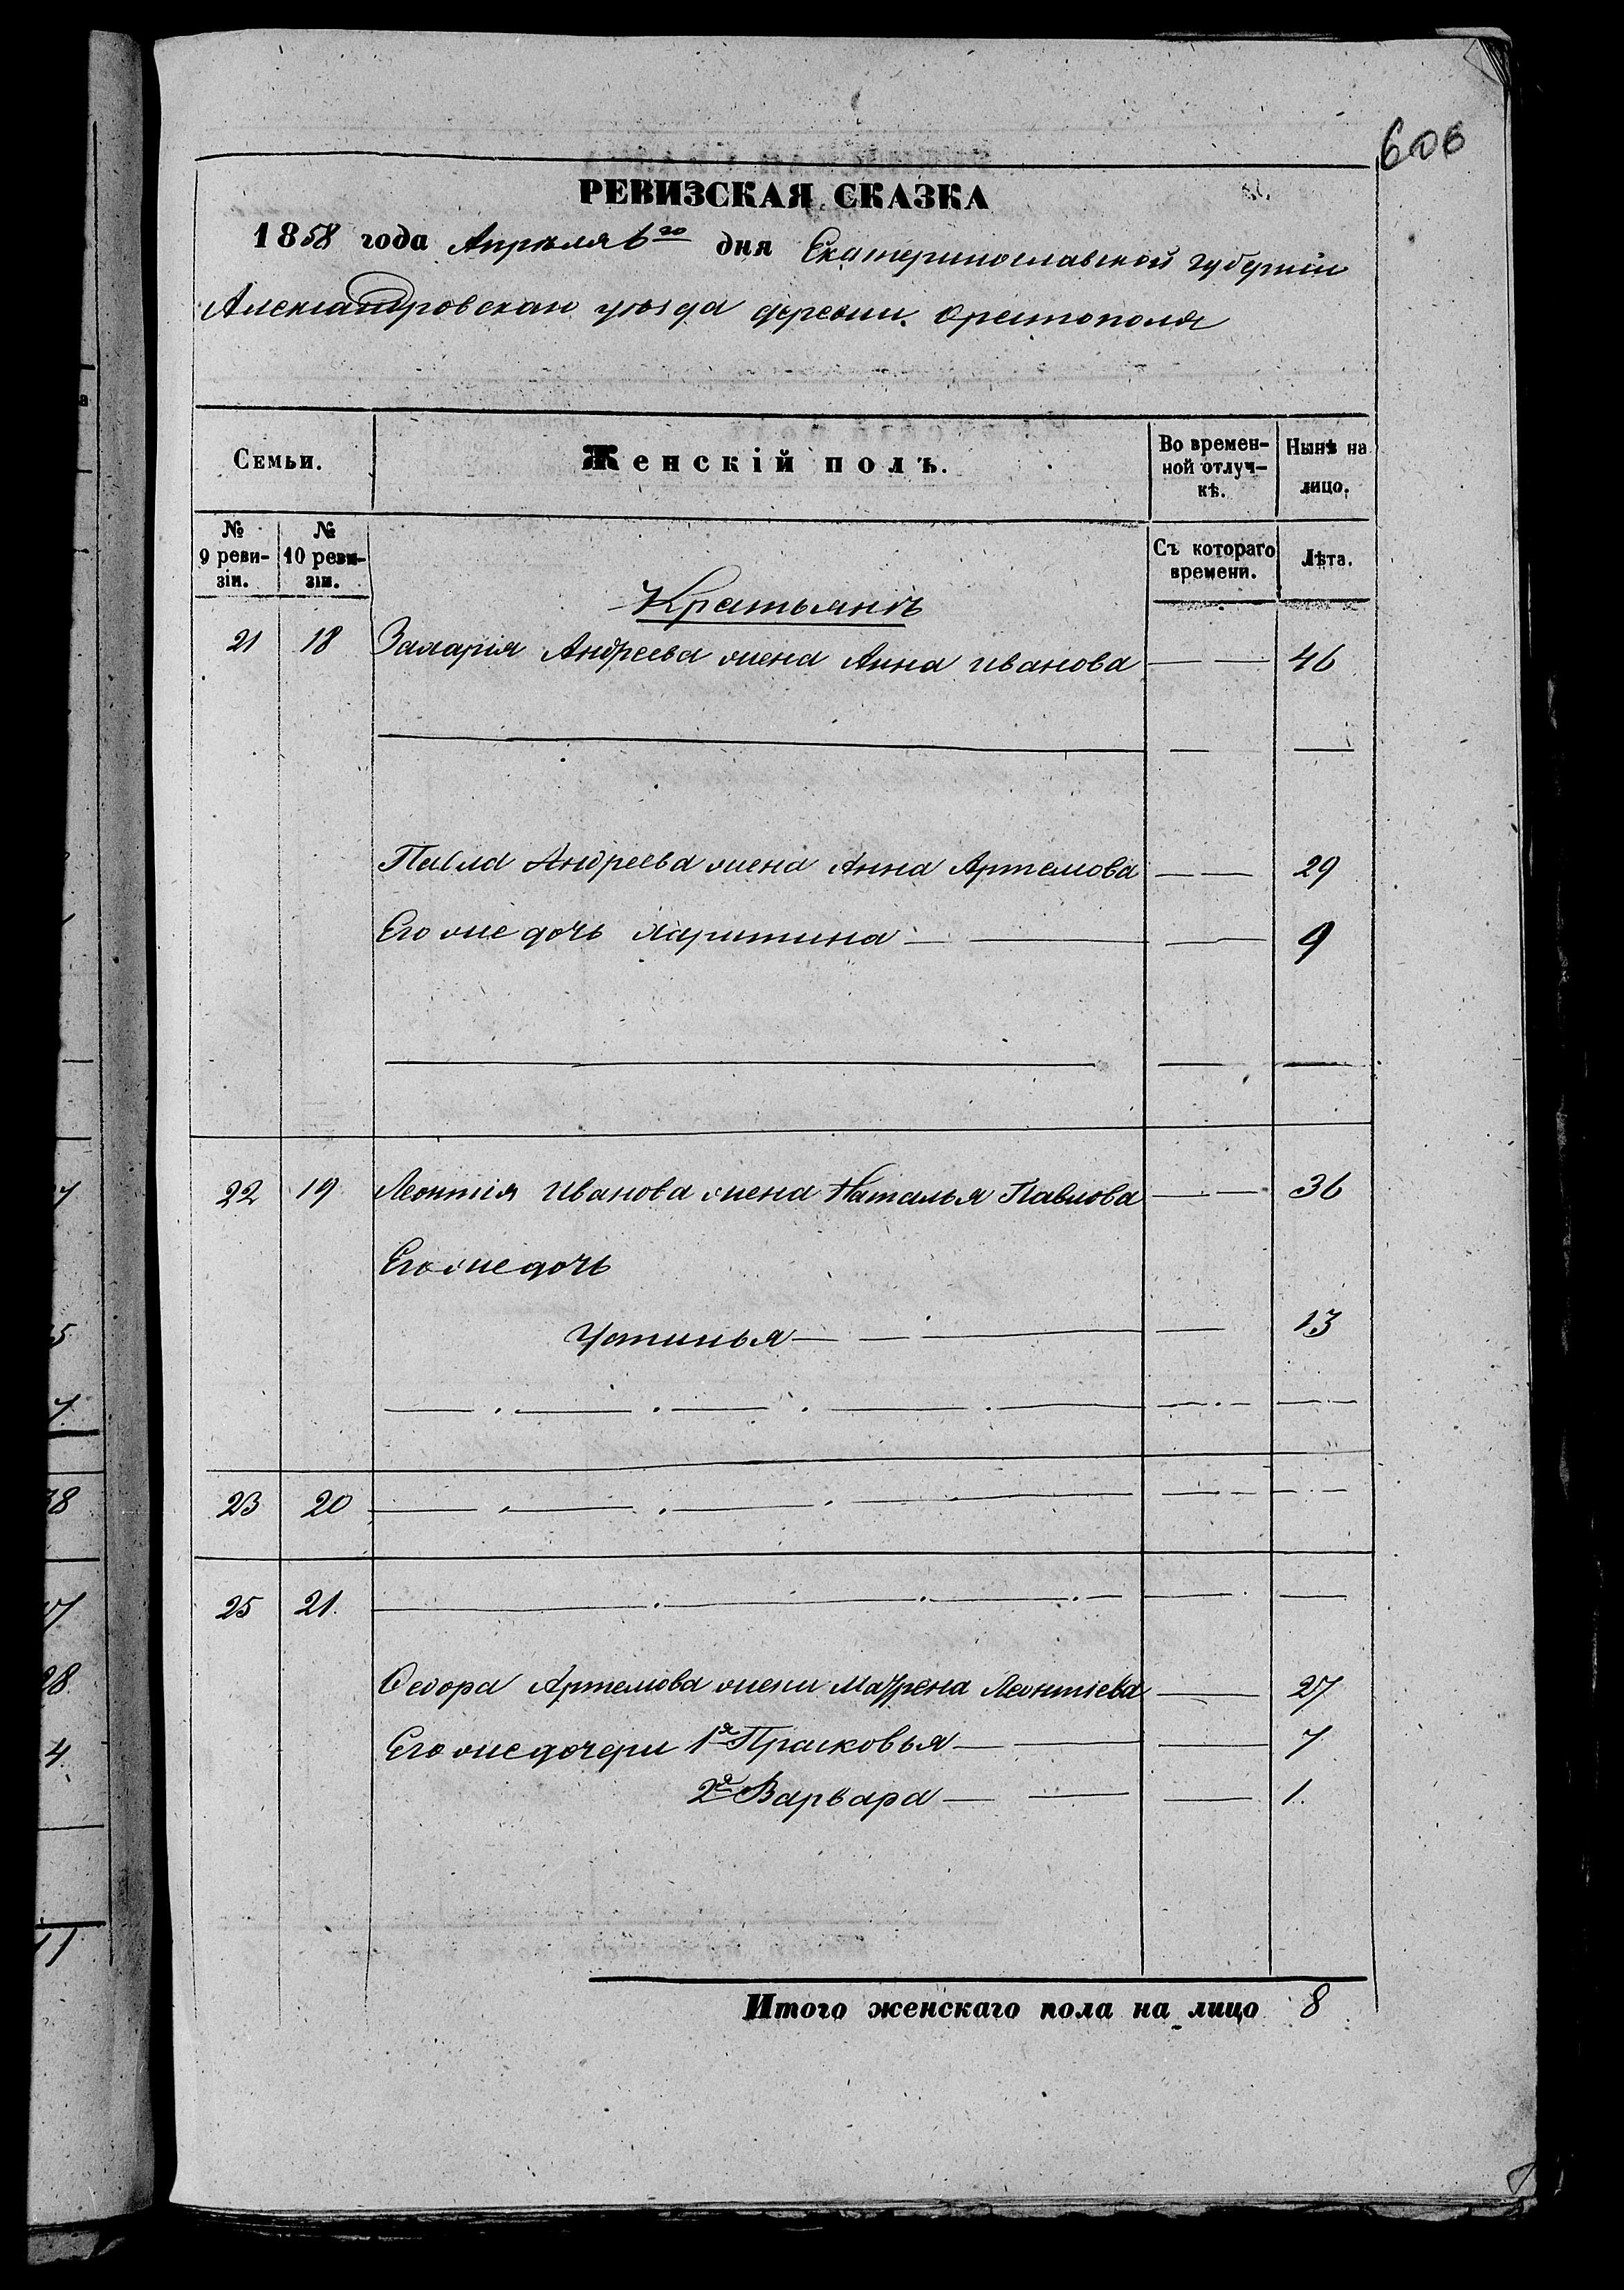 606
РЕВИЗСКАЯ СКАЗКА
1858 года Апреля 6го дня Екатеринославской губернiи
Александровскаго уѣзда деревни Орестополя
Семьи. Женскiй полъ. Во временной отлучкѣ. Нынѣ на лицо.
№ 9 ревизiи. № 10 ревизiи. Съ котораго времени. Лѣта.
Крестьянъ
21 18 Захарiя Андреева жена Анна Иванова — — 46
Павла Андреева жена Анна Артемова — — 29
Его же дочь Харитина — — — 9
22 19 Леонтiя Иванова жена Наталья Павлова — — 36
Его же дочь
Устинья — — — — 13
23 20
25 21
Федора Артемова жена Мафрена Леонтiева — 27
Его же дочери 1я Прасковья — — — 7
2я Варвара — — — 1
Итого женскаго пола на лицо 8